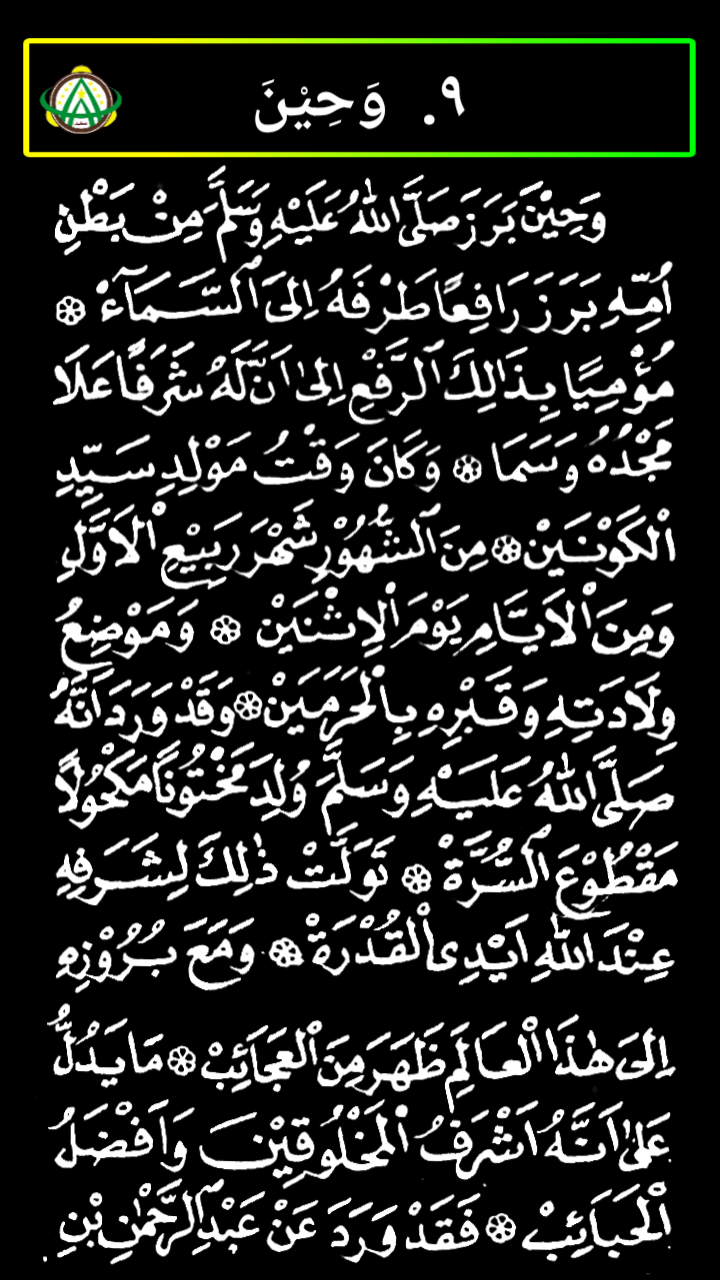 ٩. وَحِيْنَ
وَحِيْنَ بَرَزَ صَلَّى اللهُ عَلَيْهِ وَسَلَّمَ مِنْ بَطْنِ
اُمِّهِ بَرَزَ رَافِعًا طَرْفَهُ اِلَى السَّمَآءْ ۞
مُؤْمِيًا بِذَالِكَ الرَّفْعِ اِلىٰ اَنَّ لَهُ شَرَفًا عَلَا
مَجْدُهُ وَسَمَا ۞ وَكَانَ وَقْتُ مَوْلِدِ سَيِّدِ
الْكَوْنَيْنِ ۞ مِنَ الشُّهُوْرِ شَهْرَ رَبِيْعِ الْاَوَّلِ
وَمِنَ الْاَيَّامِ يَوْمَ الْاِثْنَيْنِ ۞ وَمَوْضِعُ
وِلَادَتِهِ وَقَبْرِهِ بِالْحَرَمَيْنِ ۞ وَقَدْ وَرَدَ اَنَّهُ
صَلَّى اللهُ عَلَيْهِ وَسَلَّمَ وُلِدَ مَخْتُوْنًا مَكْحُوْلًا
مَقْطُوْعَ السُّرَّةْ ۞ تَوَلَّتْ ذٰلِكَ لِشَرَفِهِ
عِنْدَ اللهِ اَيْدِى الْقُدْرَةْ ۞ وَمَعَ بُرُوْزِهِ
اِلىَ هٰذَا الْعَالَمِ ظَهَرَ مِنَ الْعَجَائِبْ ۞ مَا يَدُلُّ
عَلىٰ اَنَّهُ اَشْرَفُ الْمَخْلُوْقِيْنَ وَاَفْضَلُ
الْحَبَائِبْ ۞ فَقَدْ وَرَدَ عَنْ عَبْدِ الرَّحْمٰنِ بْنِ